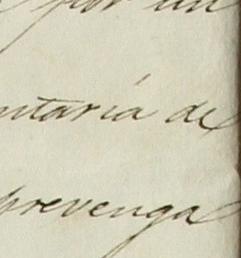 por un
ntaria de
prevenga